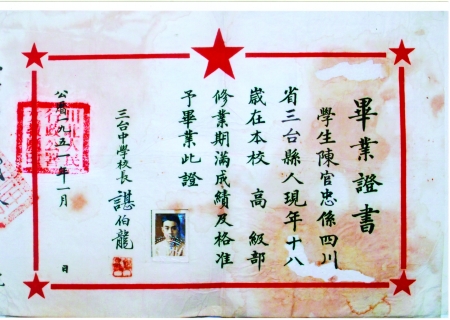 畢業證書
學生陳官忠係四川
省三台縣人現年十八
歲在本校高級部
修業期滿成績及格准
予畢業此證
三台中學校長 諶伯龍
公曆一九五一年一月 日